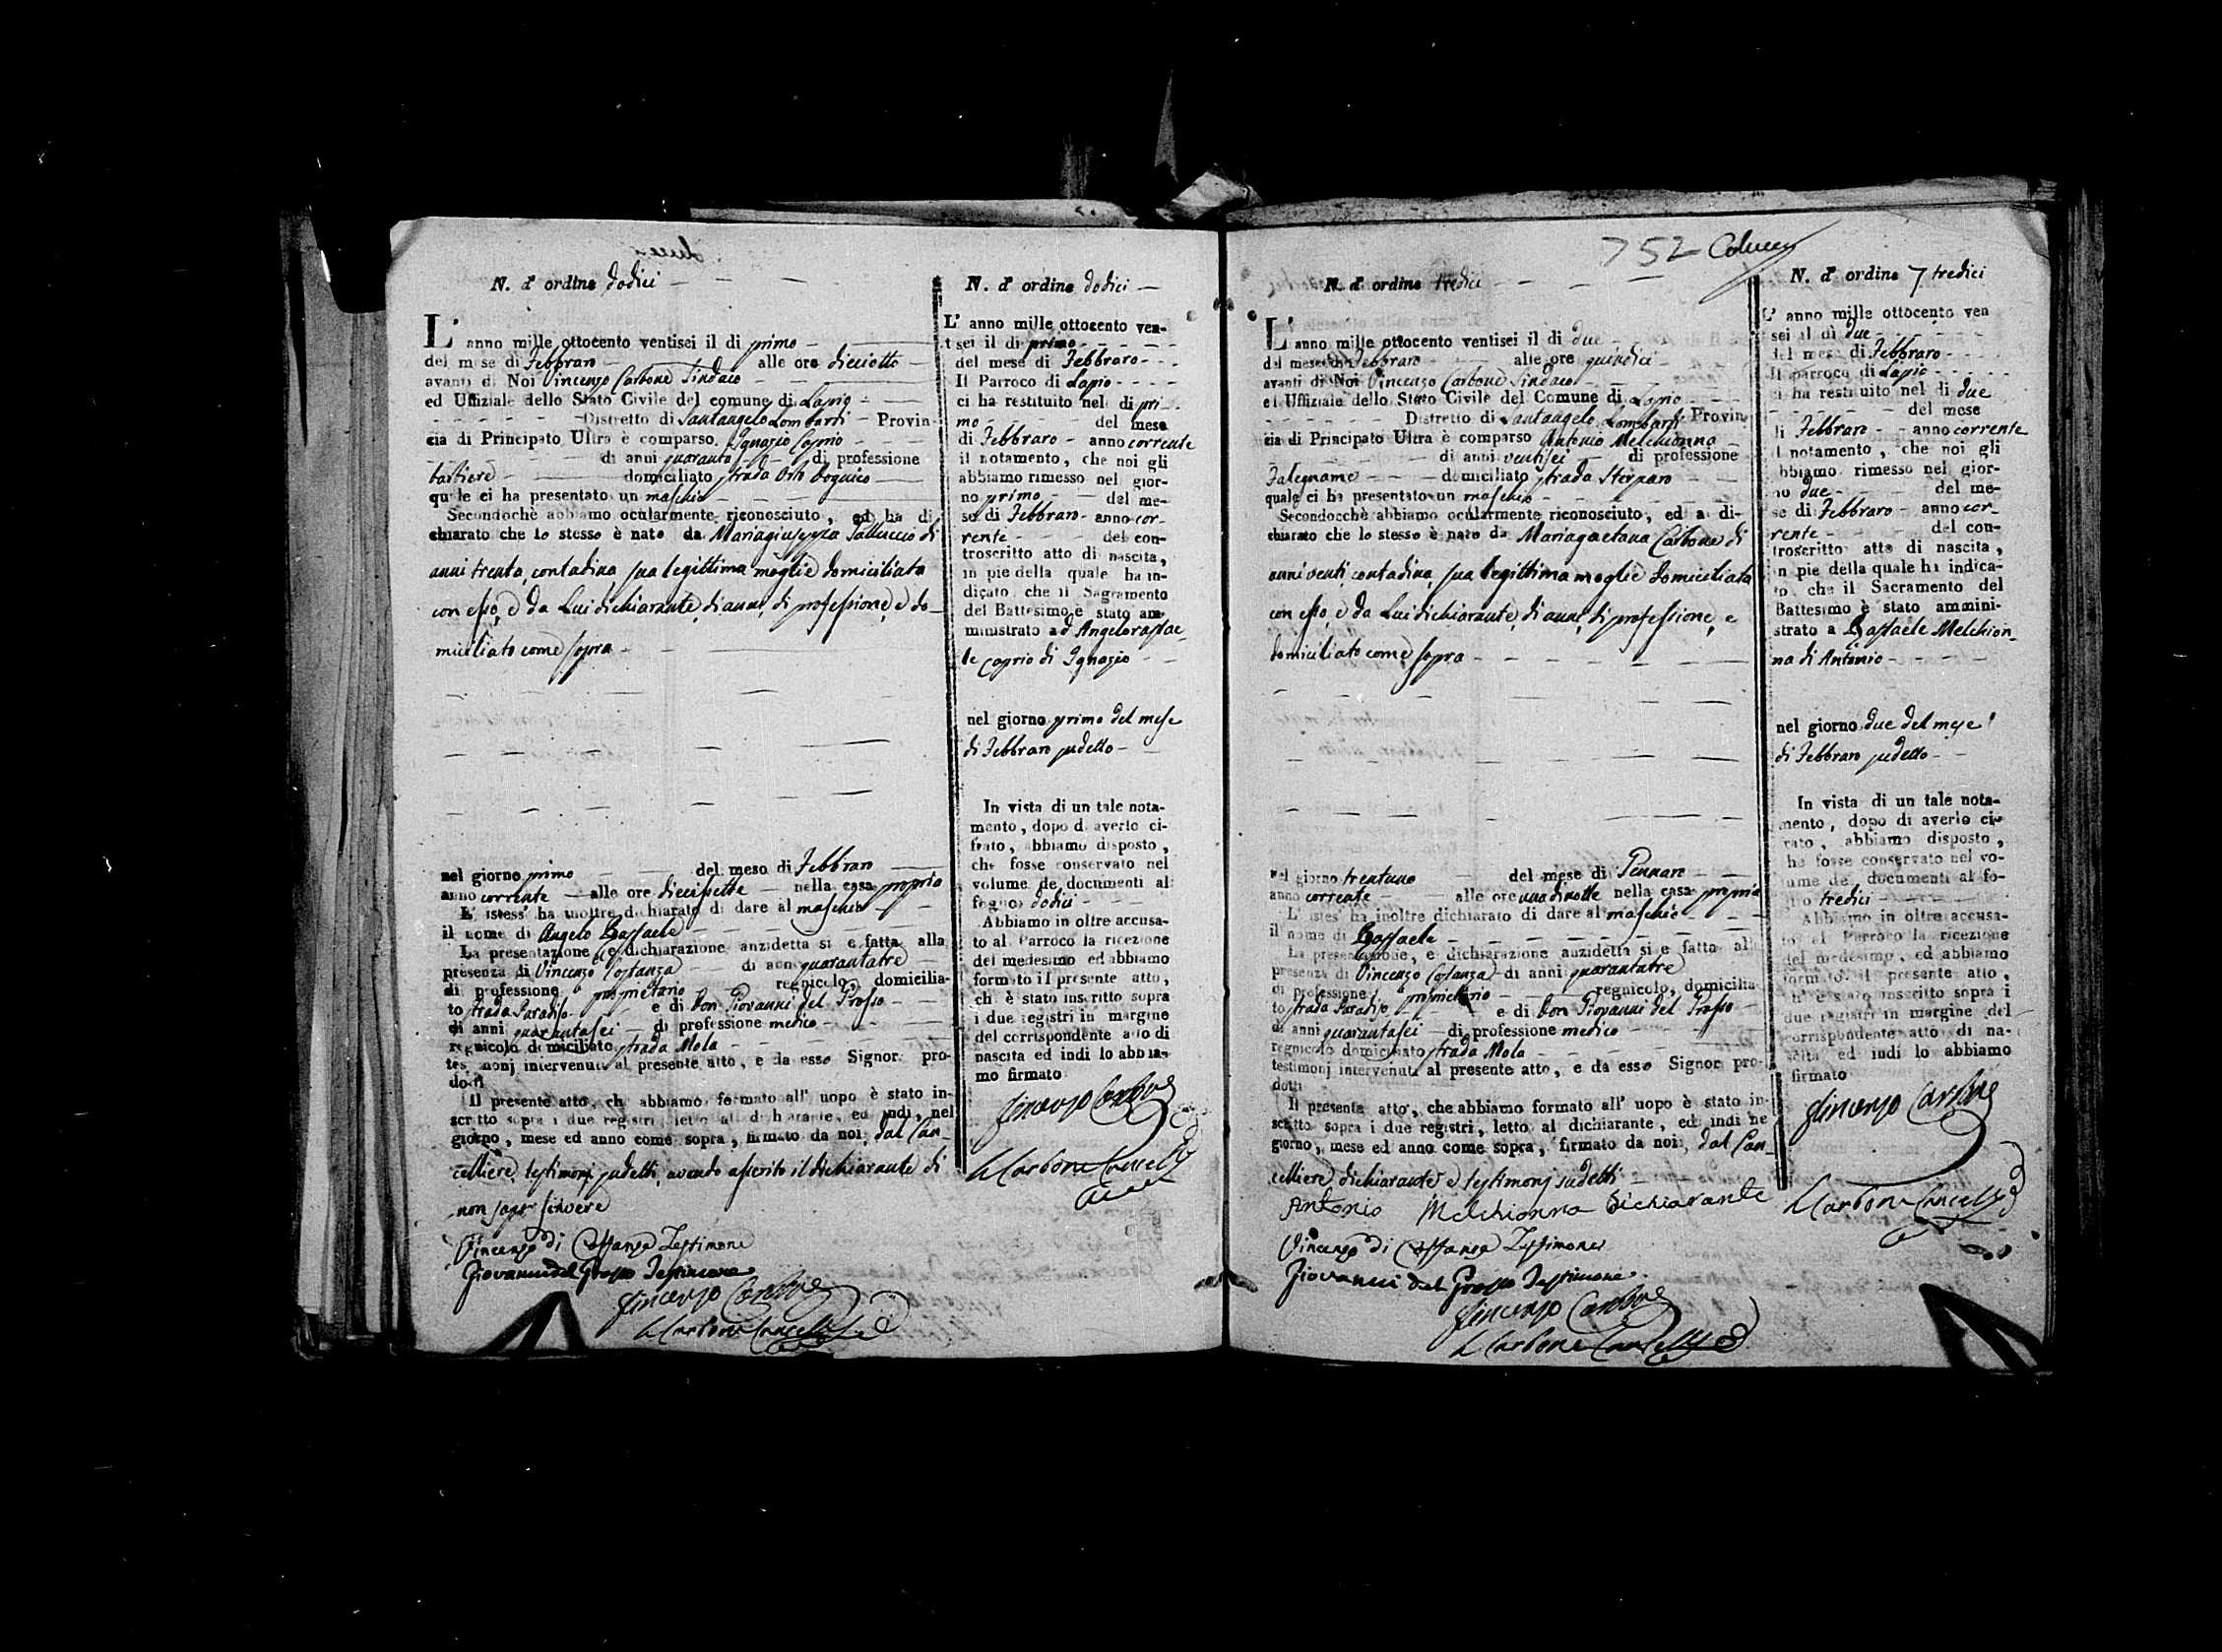 N. d' ordine dodici
L' anno mille ottocento ventisei il dì primo
del mese di Febbraro alle ore dieciotto
avanti di Noi Vincenzo Carbone Sindaco
ed Uffiziale dello Stato Civile del comune di Lapio
Distretto di Santangelo Lombardi Provin-
cia di Principato Ultra è comparso Ignazio Caprio
di anni quaranta di professione
bastiere domiciliato strada Orto
quale ci ha presentato un maschio
Secondochè abbiamo ocularmente riconosciuto, ed ha di
chiarato che lo stesso è nato da Mariagiuseppa di
anni trenta, contadina, sua legittima moglie domiciliata
con esso, e da Lui dichiarante, di anni, di professione, e do-
miciliato come sopra
nel giorno primo del mese di Febbraro
anno corrente alle ore diecisette nella casa propria
L' istess' ha inoltre dichiarato di dare al maschio
il nome di Angelo Raffaele
La presentazione, e dichiarazione anzidetta si è fatta alla
presenza di Vincenzo Costanza di anni quarantatre
di professione proprietario regnicolo, domicilia-
to strada Paradiso e di Don Giovanni del Grosso
di anni quarantasei di professione medico
regnicolo domiciliato strada Mola
testimonj intervenuti al presente atto, e da esso Signor pro-
dotti
Il presente atto, che abbiamo formato all' uopo è stato in-
scritto sopra i due registri, letto al dichiarante, ed indi, nel
giorno, mese ed anno come sopra, firmato da noi, dal Can-
celliere, testimonj sudetti, avendo asserito il dichiarante di
non saper scrivere
Vincenzo di Costanza Testimone
Giovanni del Grosso Testimone
Vincenzo Carbone
Carbone Cancell
N. d' ordine dodici
L' anno mille ottocento ven-
tsei il dì primo
del mese di Febbraro
Il Parroco di Lapio
ci ha restituito nel dì pri-
mo del mese
di Febbraro anno corrente
il notamento, che noi gli
abbiamo rimesso nel gior-
no primo del me-
se di Febbraro anno cor-
rente del con-
troscritto atto di nascita,
in piè della quale ha in-
dicato che il Sagramento
del Battesimo è stato am-
ministrato ad Angeloraffae-
le Caprio di Ignazio
nel giorno primo del mese
di Febbraro sudetto
In vista di un tale nota-
mento, dopo d averlo ci-
frato, abbiamo disposto,
che fosse conservato nel
volume de documenti al
foglio dodici
Abbiamo in oltre accusa-
to al Parroco la ricezione
del medesimo ed abbiamo
formato il presente atto,
ch è stato inscritto sopra
i due registri in margine
del corrispondente atto di
nascita ed indi lo abbia-
mo firmato
Vincenzo Carbone
Carbone Cancell
752 Colucci
N. d' ordine tredici
L' anno mille ottocento ventisei il dì due
del mese di Febbraro alle ore quindici
avanti di Noi Vincenzo Carbone Sindaco
ed Uffiziale dello Stato Civile del Comune di Lapio
Distretto di Santangelo Lombardi Provin-
cia di Principato Ultra è comparso Antonio Melchionna
di anni ventisei di professione
Falegname domiciliato strada Sterparo
quale ci ha presentato un maschio
Secondocchè abbiamo ocularmente riconosciuto, ed a di-
chiarato che lo stesso è nato da Mariagaetana Carbone di
anni venti, contadina, sua legittima moglie domiciliata
con esso, e da Lui dichiarante, di anni, di professione, e
domiciliato come sopra
nel giorno trentuno del mese di Gennaro
anno corrente alle ore una di notte nella casa propria
L' istes' ha inoltre dichiarato di dare al maschio
il nome di Raffaele
La presentazione, e dichiarazione anzidetta si è fatta all
presenza di Vincenzo Costanza di anni quarantatre
di professione proprietario regnicolo, domicilia
to strada Paradiso e di Don Giovanni del Grosso
di anni quarantasei di professione medico
regnicolo domiciliato strada Mola
testimonj intervenuti al presente atto, e da esso Signor pro-
dotti
Il presente atto, che abbiamo formato all' uopo è stato in-
scritto sopra i due registri, letto al dichiarante, ed indi ne
giorno, mese ed anno come sopra, firmato da noi, dal Can-
celliere, dichiarante e testimonj sudetti
Antonio Melchionna Dichiarante
Vincenzo di Costanza Testimone
Giovanni del Grosso Testimone
Vincenzo Carbone
Carbone Cancell
N. d' ordine 7 tredici
L' anno mille ottocento ven
sei il dì due
del mese di Febbraro
Il parroco di Lapio
ci ha restituito nel dì due
del mese
di Febbraro anno corrente
il notamento, che noi gli
abbiamo rimesso nel gior-
no due del me-
se di Febbraro anno cor-
rente del con-
troscritto atto di nascita,
in piè della quale ha indica-
to che il Sacramento del
Battesimo è stato ammini-
strato a Raffaele Melchion-
na di Antonio
nel giorno due del mese
di Febbraro sudetto
In vista di un tale nota-
mento, dopo di averlo cif-
rato, abbiamo disposto,
he fosse conservato nel vo-
lume de' documenti al fo-
glio tredici
Abbiamo in oltre accusa-
to al Parroco la ricezione
del medesimo, ed abbiamo
formato il presente atto,
ch' è stato inscritto sopra i
due registri in margine del
corrispondente atto di na-
scita ed indi lo abbiamo
firmato
Vincenzo Carbone
Carbone Cancell